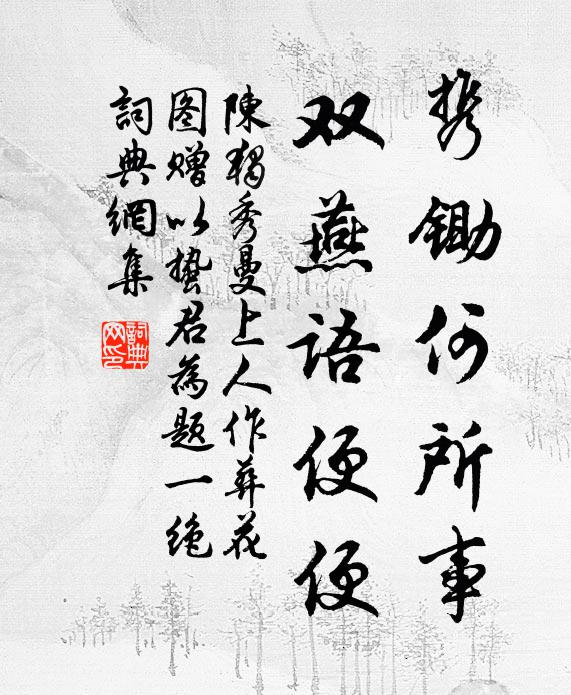 携鋤何所事
双燕語便便
陳獨秀曼上人作葬花
图赠以蛰君為题一绝
詞典網集
詞典網印